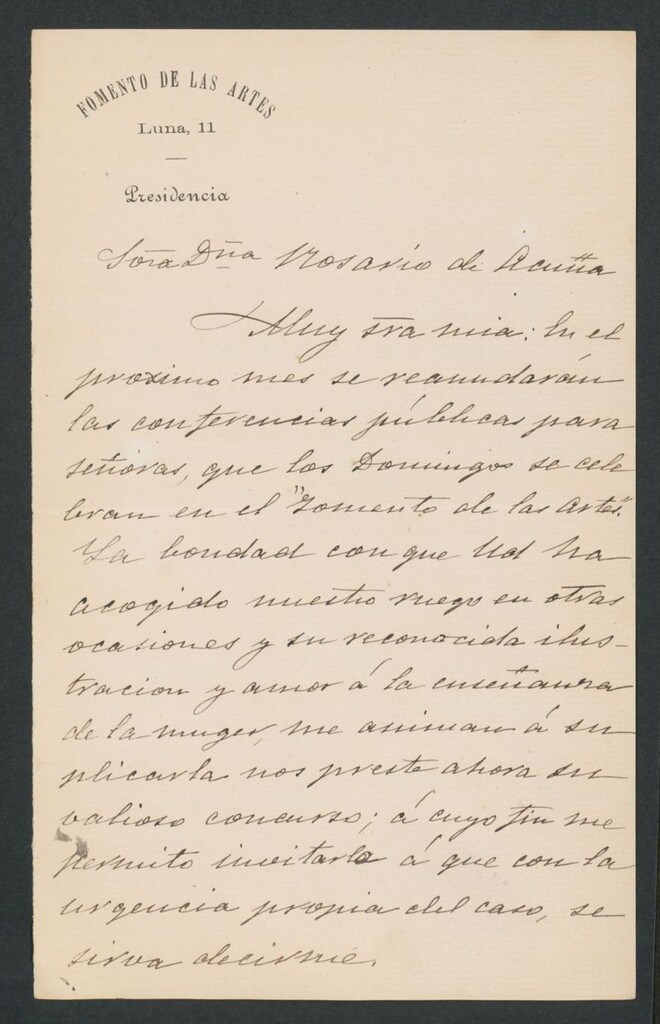 FOMENTO DE LAS ARTES
Luna, 11
Presidencia
Sora Dña Rosario de Acuña
Muy sra mia: En el
proximo mes se reanudarán
las conferencias públicas para
señoras, que los Domingos se cele
bran en el "Fomento de las Artes".
La bondad con que Ud ha
acogido nuestro ruego en otras
ocasiones y su reconocida ilus-
tracion y amor á la enseñanza
de la muger, me animan á su
plicarla nos preste ahora su
valioso concurso; á cuyo fin me
permito invitarla á que con la
urgencia propia del caso, se
sirva decirme.